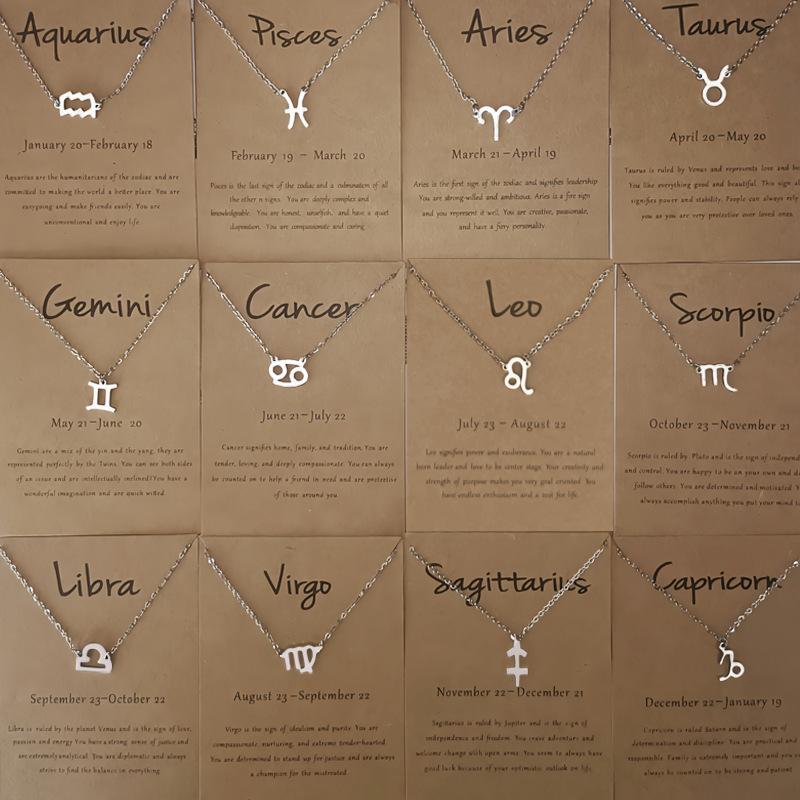 Aquarius
January 20-February 18
Aquarius are the humanitarians of the zodiac and are
committed to making the world a better place. You are
easygoing and make friends easily. You are
unconventional and enjoy life.
Pisces
February 19 - March 20
Pisces is the last sign of the zodiac and a culmination of all
the other n signs. You are deeply complex and
knowledgable. You are honest, unselfish, and have a quiet
disposition. You are compassionate and caring.
Aries
March 21-April 19
Aries is the first sign of the zodiac and signifies leadership
You are strong-willed and ambitious. Aries is a fire sign
and you represent it well. You are creative, passionate,
and have a fiery personality.
Taurus
April 20-May 20
Taurus is ruled by Venus and represents love and
You like everything good and beautiful. This sign
signifies power and stability. People can always rely
you as you are very protective over loved ones.
Gemini
May 21-June 20
Gemini are a mix of the yin and the yang, they are
represented perfectly by the Twins. You can see both sides
of an issue and are intellectually inclined!You have a
wonderful imagination and are quick witted.
Cancer
June 21-July 22
Cancer signifies home, family, and tradition. You are
tender, loving, and deeply compassionate. You can always
be counted on to help a friend in need and are protective
of those around you.
Leo
July 23 - August 22
Leo signifies power and exuberance. You are a natural
born leader and love to be center stage. Your creativity and
strength of purpose makes you very goal oriented. You
have endless enthusiasm and a zest for life.
Scorpio
October 23-November 21
Scorpio is ruled by Pluto and is the sign of
and control. You are happy to be on your own and
follow others. You are determined and motivated.
always accomplish anything you put your mind
Libra
September 23-October 22
Libra is ruled by the planet Venus and is the sign of love,
passion and energy You have a strong sense of justice and
are extremely analytical. You are diplomatic and always
strive to find the balance in everything.
Virgo
August 23-September 22
Virgo is the sign of idealism and purity. You are
compassionate, nurturing, and extreme tender-hearted.
You are determined to stand up for justice and are always
a champion for the mistreated.
Sagittarius
November 22-December 21
Sagittarius is ruled by Jupiter and is the sign of
independence and freedom. You crave adventure and
welcome change with open arms. You seem to always have
good luck because of your optimistic outlook on life.
Capricorn
December 22-January 19
Capricorn is ruled Saturn and is the sign of
determination and discipline. You are practical and
responsible. Family is extremely important and
always be counted on to be strong and patient.